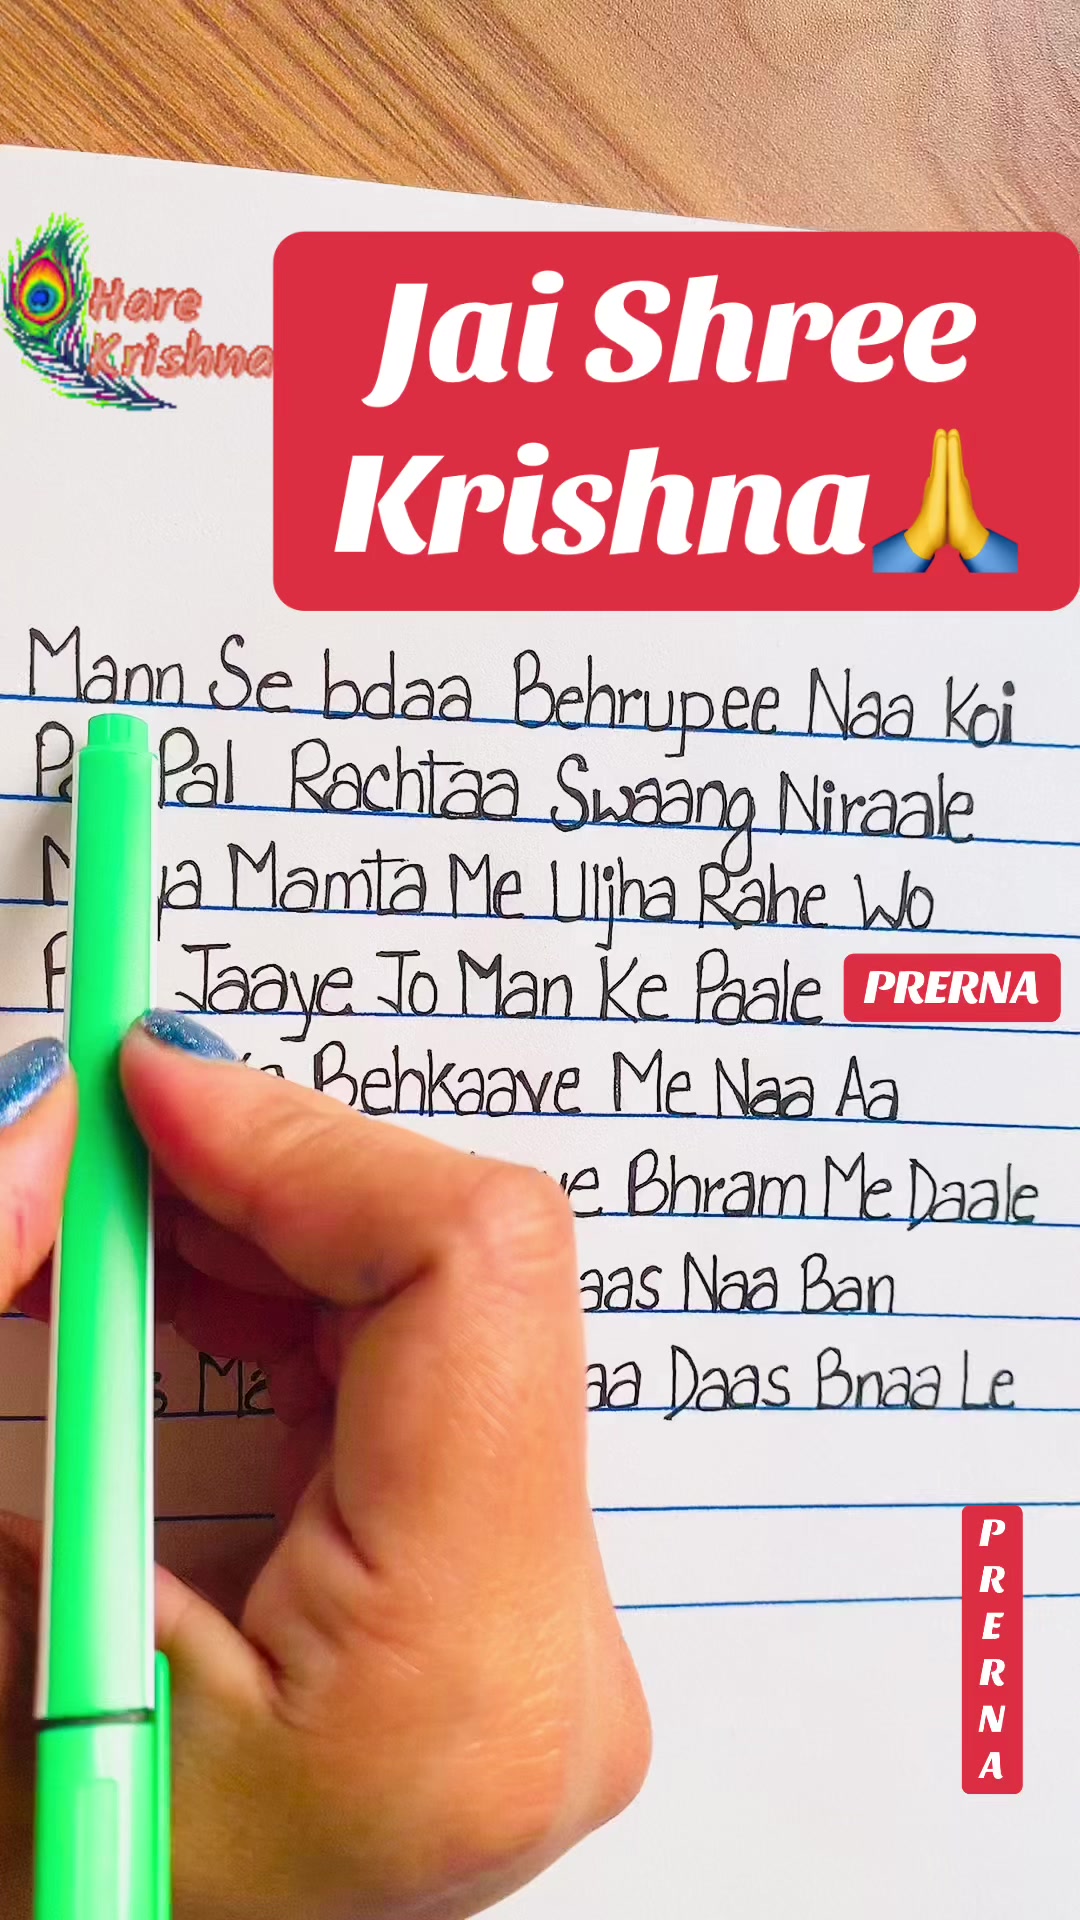 Hare
Krishna
Jai Shree
Krishna🙏
Mann Se bdaa Behrupee Naa Koi
Pal Rachtaa Swaang Niraale
Mamta Me Uljha Rahe Wo
Jaaye Jo Man Ke Paale
PRERNA
Behkaave Me Naa Aa
Bhram Me Daale
Naa Ban
Daas Bnaa Le
PRERNA